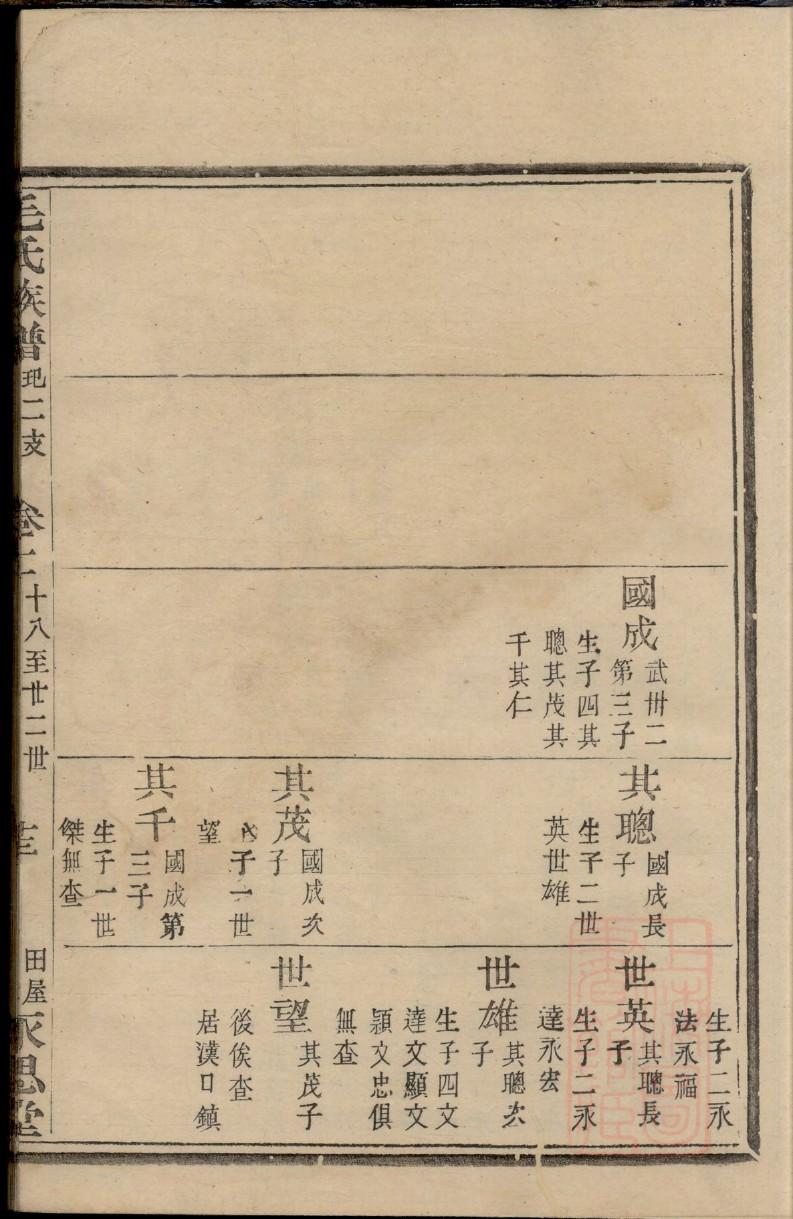 國成
武卅二
第三子
生子四其
聰其茂其
千其仁
其聰
國成長
子
生子二世
英世雄
其茂
國成次
子
子一世
望
其千
國成第
三子
生子一世
傑無查
生子二永
法永福
世英
其聰長
子
生子二永
達永宏
世雄
其聰次
子
生子四文
達文顯文
穎文忠俱
無查
世望
其茂子
後俟查
居漢口鎮
毛氏族譜
二支
卷二
十八至廿二世
田屋
永思堂